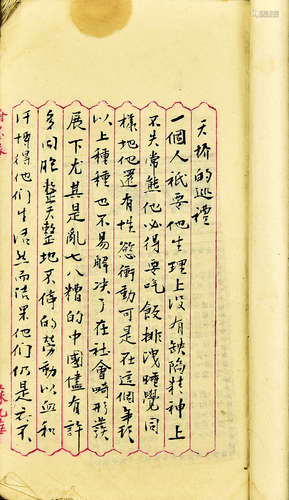 天橋的巡禮
一個人祇要他生理上沒有缺陷精神上
不失常態他必得要吃飯排洩睡覺同
樣地他還有性慾衝動可是在這個年頭
以上種種也不易解決了在社會畸形發
展下尤其是亂七八糟的中國儘有許
多同胞整天整地不停的勞動以血和
汗博得他們生活然而結果他們仍是衣不